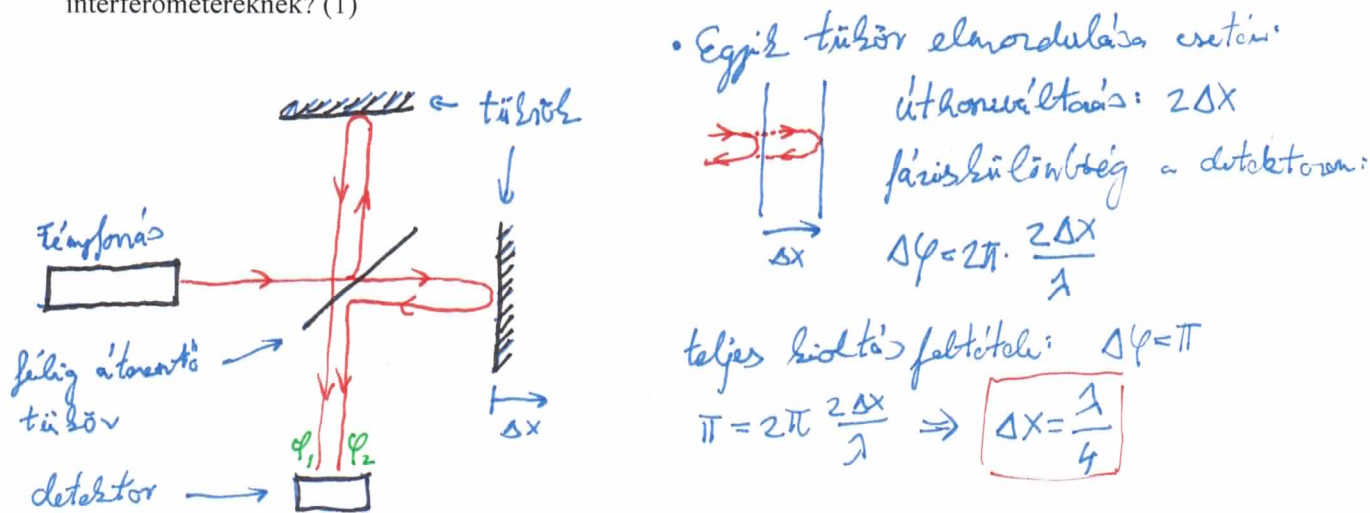 interferométereknek? (1)
tükrök
Fényforrás
félig áteresztő
tükör
detektor
φ₁ φ₂
Δx
• Egyik tükör elmozdulása esetén:
úthosszváltozás: 2Δx
fáziskülönbség a detektoron:
Δx
Δφ = 2π · 2Δx/λ
teljes kioltás feltétele: Δφ = π
π = 2π 2Δx/λ ⇒ Δx = λ/4